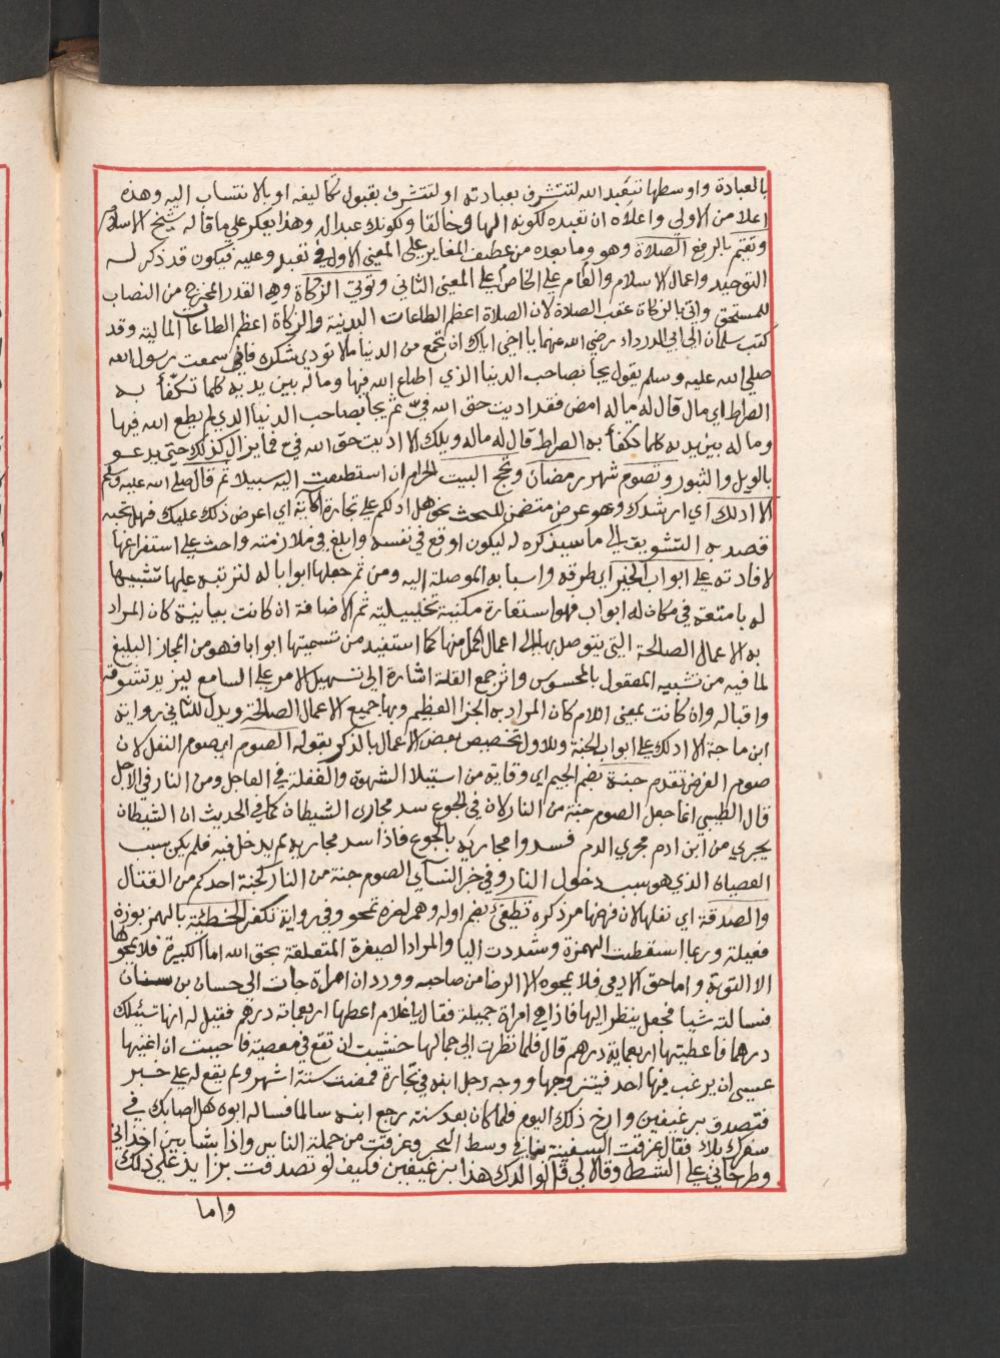 بالعبادة واوسطها تتعبد الله لتتشرف بعبادته او لتتشرف بقبول تكاليفه او بالانتساب اليه وهذه
اعلا من الاولي واعلاه ان تعبده لكونه الها وخالقا ولكونك عبدا له وهذا يعكر علي ما قاله شيخ الاسلام
وتقيم بالرفع الصلاة وهو وما بعده من عطف المغاير علي المعني الاول في تعبد وعليه فيكون قد ذكر له
التوحيد واعمال الاسلام والعام علي الخاص علي المعني الثاني وتوتي الزكاة وهي القدر المخرج من النصاب
للمستحق واتي بالزكاة عقب الصلاة لان الصلاة اعظم الطاعات البدنية والزكاة اعظم الطاعات المالية وقد
كتب سلمان الي ابي الدرداء رضي الله عنهما يا اخي اياك ان تجمع من الدنيا ما لا تودي شكره فاني سمعت رسول الله
صلي الله عليه وسلم يقول يجا بصاحب الدنيا الذي اطاع الله فيها وماله بين يديه كلما تكفأ به
الصراط اي مال قال له ماله امض فقد اديت حق الله في ثم يجا بصاحب الدنيا الذي لم يطع الله فيها
وماله بين يديه كلما تكفأ به الصراط قال له ماله ويلك الا اديت حق الله في فما يزال كذلك حتي يدعو
بالويل والثبور وتصوم شهر رمضان وتحج البيت الحرام ان استطعت اليه سبيلا ثم قال صلي الله عليه وسلم
الا ادلك اي ارشدك وهو عرض متضمن للحث نحو هل ادلكم علي تجارة الاية اي اعرض ذلك عليك فهل تحبه
قصد به التشويق الي ما سيذكره له ليكون اوقع في نفسه وابلغ في ملازمته واحث علي استفراغها
لافادته علي ابواب الخير اي طرقه واسبابه الموصلة اليه ومن ثم جعلها ابوابا له لترتبه عليها تشبيها
له بامتعة في مكان له ابواب فهو استعارة مكنية تخييلية ثم الاضافة ان كانت بيانية كان المراد
به الاعمال الصالحة التي يتوصل بها الي اعمال اكمل منها كما استفيد من تسميتها ابوابا فهو من المجاز البليغ
لما فيه من تشبيه المعقول بالمحسوس واثر جمع القلة اشارة الي تسهيل الامر علي السامع ليزيد تشوقه
واقباله وان كانت بمعني اللام كان المراد به الجزا العظيم وبها جميع الاعمال الصالحة ويدل للثاني رواية
ابن ماجة الا ادلك علي ابواب الجنة وللاول تخصيص بعض الاعمال بالذكر بقوله الصوم اي صوم النفل لان
صوم الفرض تقدم جنة بضم الجيم اي وقاية من استيلا الشهوة والغفلة في العاجل ومن النار في الاجل
قال الطيبي انما جعل الصوم جنة من النار لان في الجوع سد مجاري الشيطان كما في الحديث ان الشيطان
يجري من ابن ادم مجري الدم فسدوا مجاريه بالجوع فاذا سد مجاريه لم يدخل فيه فلم يكن سبب
العصيان الذي هو سبب دخول النار وفي خبر النسآي الصوم جنة من النار كجنة احدكم من القتال
والصدقة اي نفلها لان فرضها مر ذكره تطفئ بضم اوله وهمز اخره تمحو وفي رواية تكفر الخطيئة بالهمز بوزن
فعيلة وربما اسقطت الهمزة وشددت اليا والمراد الصغيرة المتعلقة بحق الله اما الكبيرة فلا يمحوها
الا التوبة واما حق الادمي فلا يمحوه الا الرضا من صاحبه وورد ان امراة جات الي حسان بن سنان
فسالته شيا فجعل ينظر اليها فاذا هي امراة جميلة فقال يا غلام اعطها اربعماية درهم فقيل له انها تسئلك
درهما فاعطيتها اربعماية درهم قال فلما نظرت الي جمالها خشيت ان تقع في معصية فاحببت ان اغنيها
عسي ان يرغب فيها احد فيتزوجها ووجه رجل ابنه في تجارة فمضت ستة اشهر ولم يقع له علي خبر
فتصدق برغيفين وارخ ذلك اليوم فلما كان بعد سنة رجع ابنه سالما فساله ابوه هل اصابك في
سفرك بلاء فقال غرقت السفينة بنا في وسط البحر وغرقت من جملة الناس واذا بشابين اخذاني
وطرحاني علي الشط وقالا لي قل لوالدك هذا برغيفين فكيف لو تصدقت بزايد علي ذلك
واما